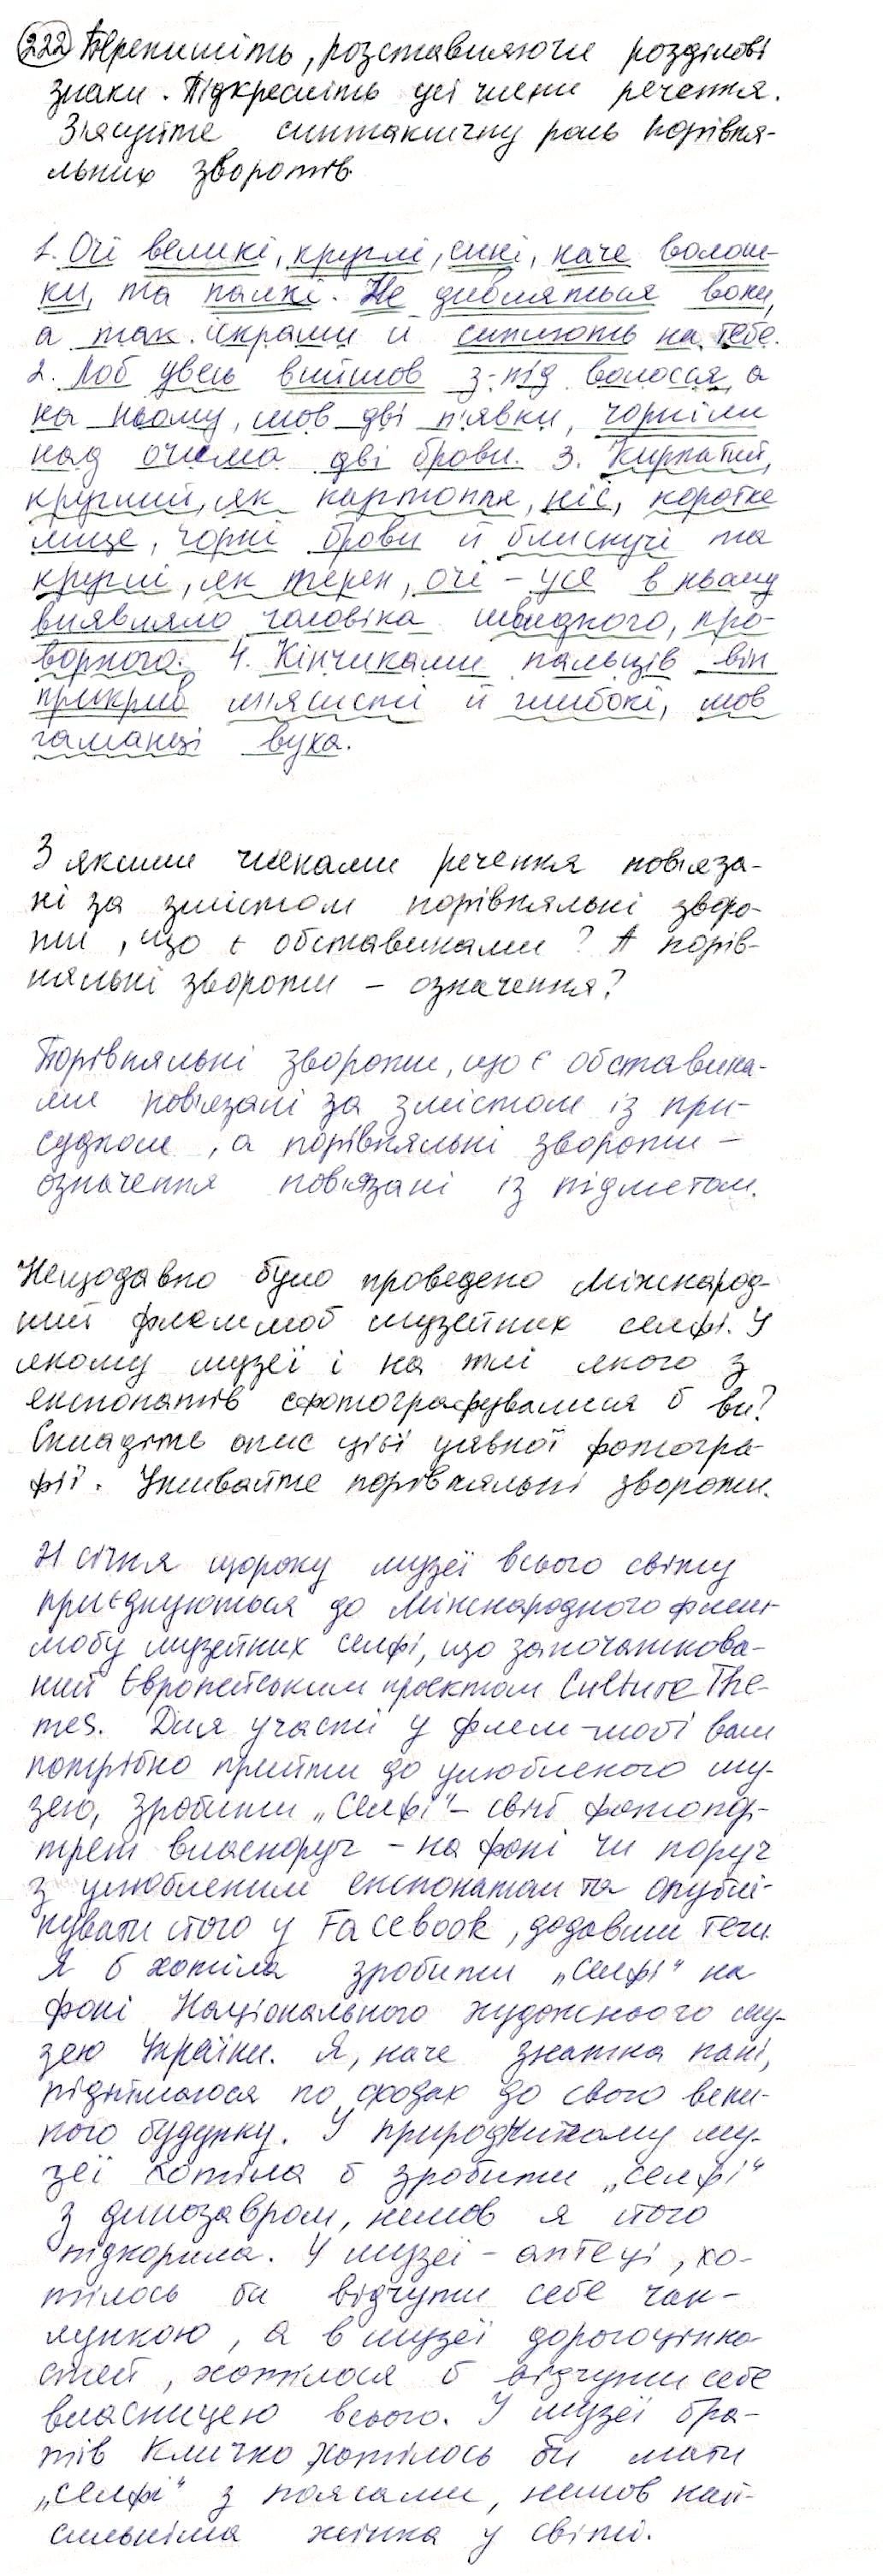 222 Перепишіть, розставляючи розділові
знаки. Підкресліть усі члени речення.
З'ясуйте синтаксичну роль порівня-
льних зворотів.
1. Очі великі, круглі, сині, наче волош-
ки, та палкі. Не дивляться вони,
а так іскрами й сиплють на тебе.
2. Лоб увесь вийшов з-під волосся, а
на ньому, мов дві п'явки, чорніли
над очима дві брови. 3. Кирпатий,
круглий, як картопля, ніс, коротке
лице, чорні брови й блискучі та
круглі, як терен, очі – усе в ньому
виявляло чоловіка швидкого, про-
ворного. 4. Кінчиками пальців він
прикрив м'ясисті й глибокі, мов
гаманці вуха.
З якими членами речення пов'яза-
ні за змістом порівняльні зворо-
ти, що є обставинами? А порів-
няльні звороти – означення?
Порівняльні звороти, що є обставина-
ми пов'язані за змістом із при-
судком, а порівняльні звороти –
означення пов'язані із підметом.
Нещодавно було проведено Міжнарод-
ний флешмоб музейних селфі. У
якому музеї і на тлі якого з
експонатів сфотографувалися б ви?
Складіть опис цієї уявної фотогра-
фії. Уживайте порівняльні звороти.
21 січня щороку музеї всього світу
приєднуються до Міжнародного флеш-
мобу музейних селфі, що започаткова-
ний Європейським проєктом Culture The-
mes. Для участі у флеш-мобі вам
потрібно прийти до улюбленого му-
зею, зробити „Селфі" – свій фотопор-
трет власноруч – на фоні чи поруч
з улюбленим експонатом та опублі-
кувати його у Facebook, додавши теги.
Я б хотіла зробити „селфі" на
фоні Національного художнього му-
зею України. Я, наче знатна пані,
піднімаюся по сходах до свого вели-
кого будинку. У природничому му-
зеї хотіла б зробити „селфі"
з динозавром, немов я його
підкорила. У музеї – аптеці, хо-
тілось би відчути себе чак-
лункою, а в музеї дорогоцінно-
стей, хотілося б відчути себе
власницею всього. У музеї бра-
тів Кличко хотілось би мати
„селфі" з поясами, немов най-
сильніша жінка у світі.